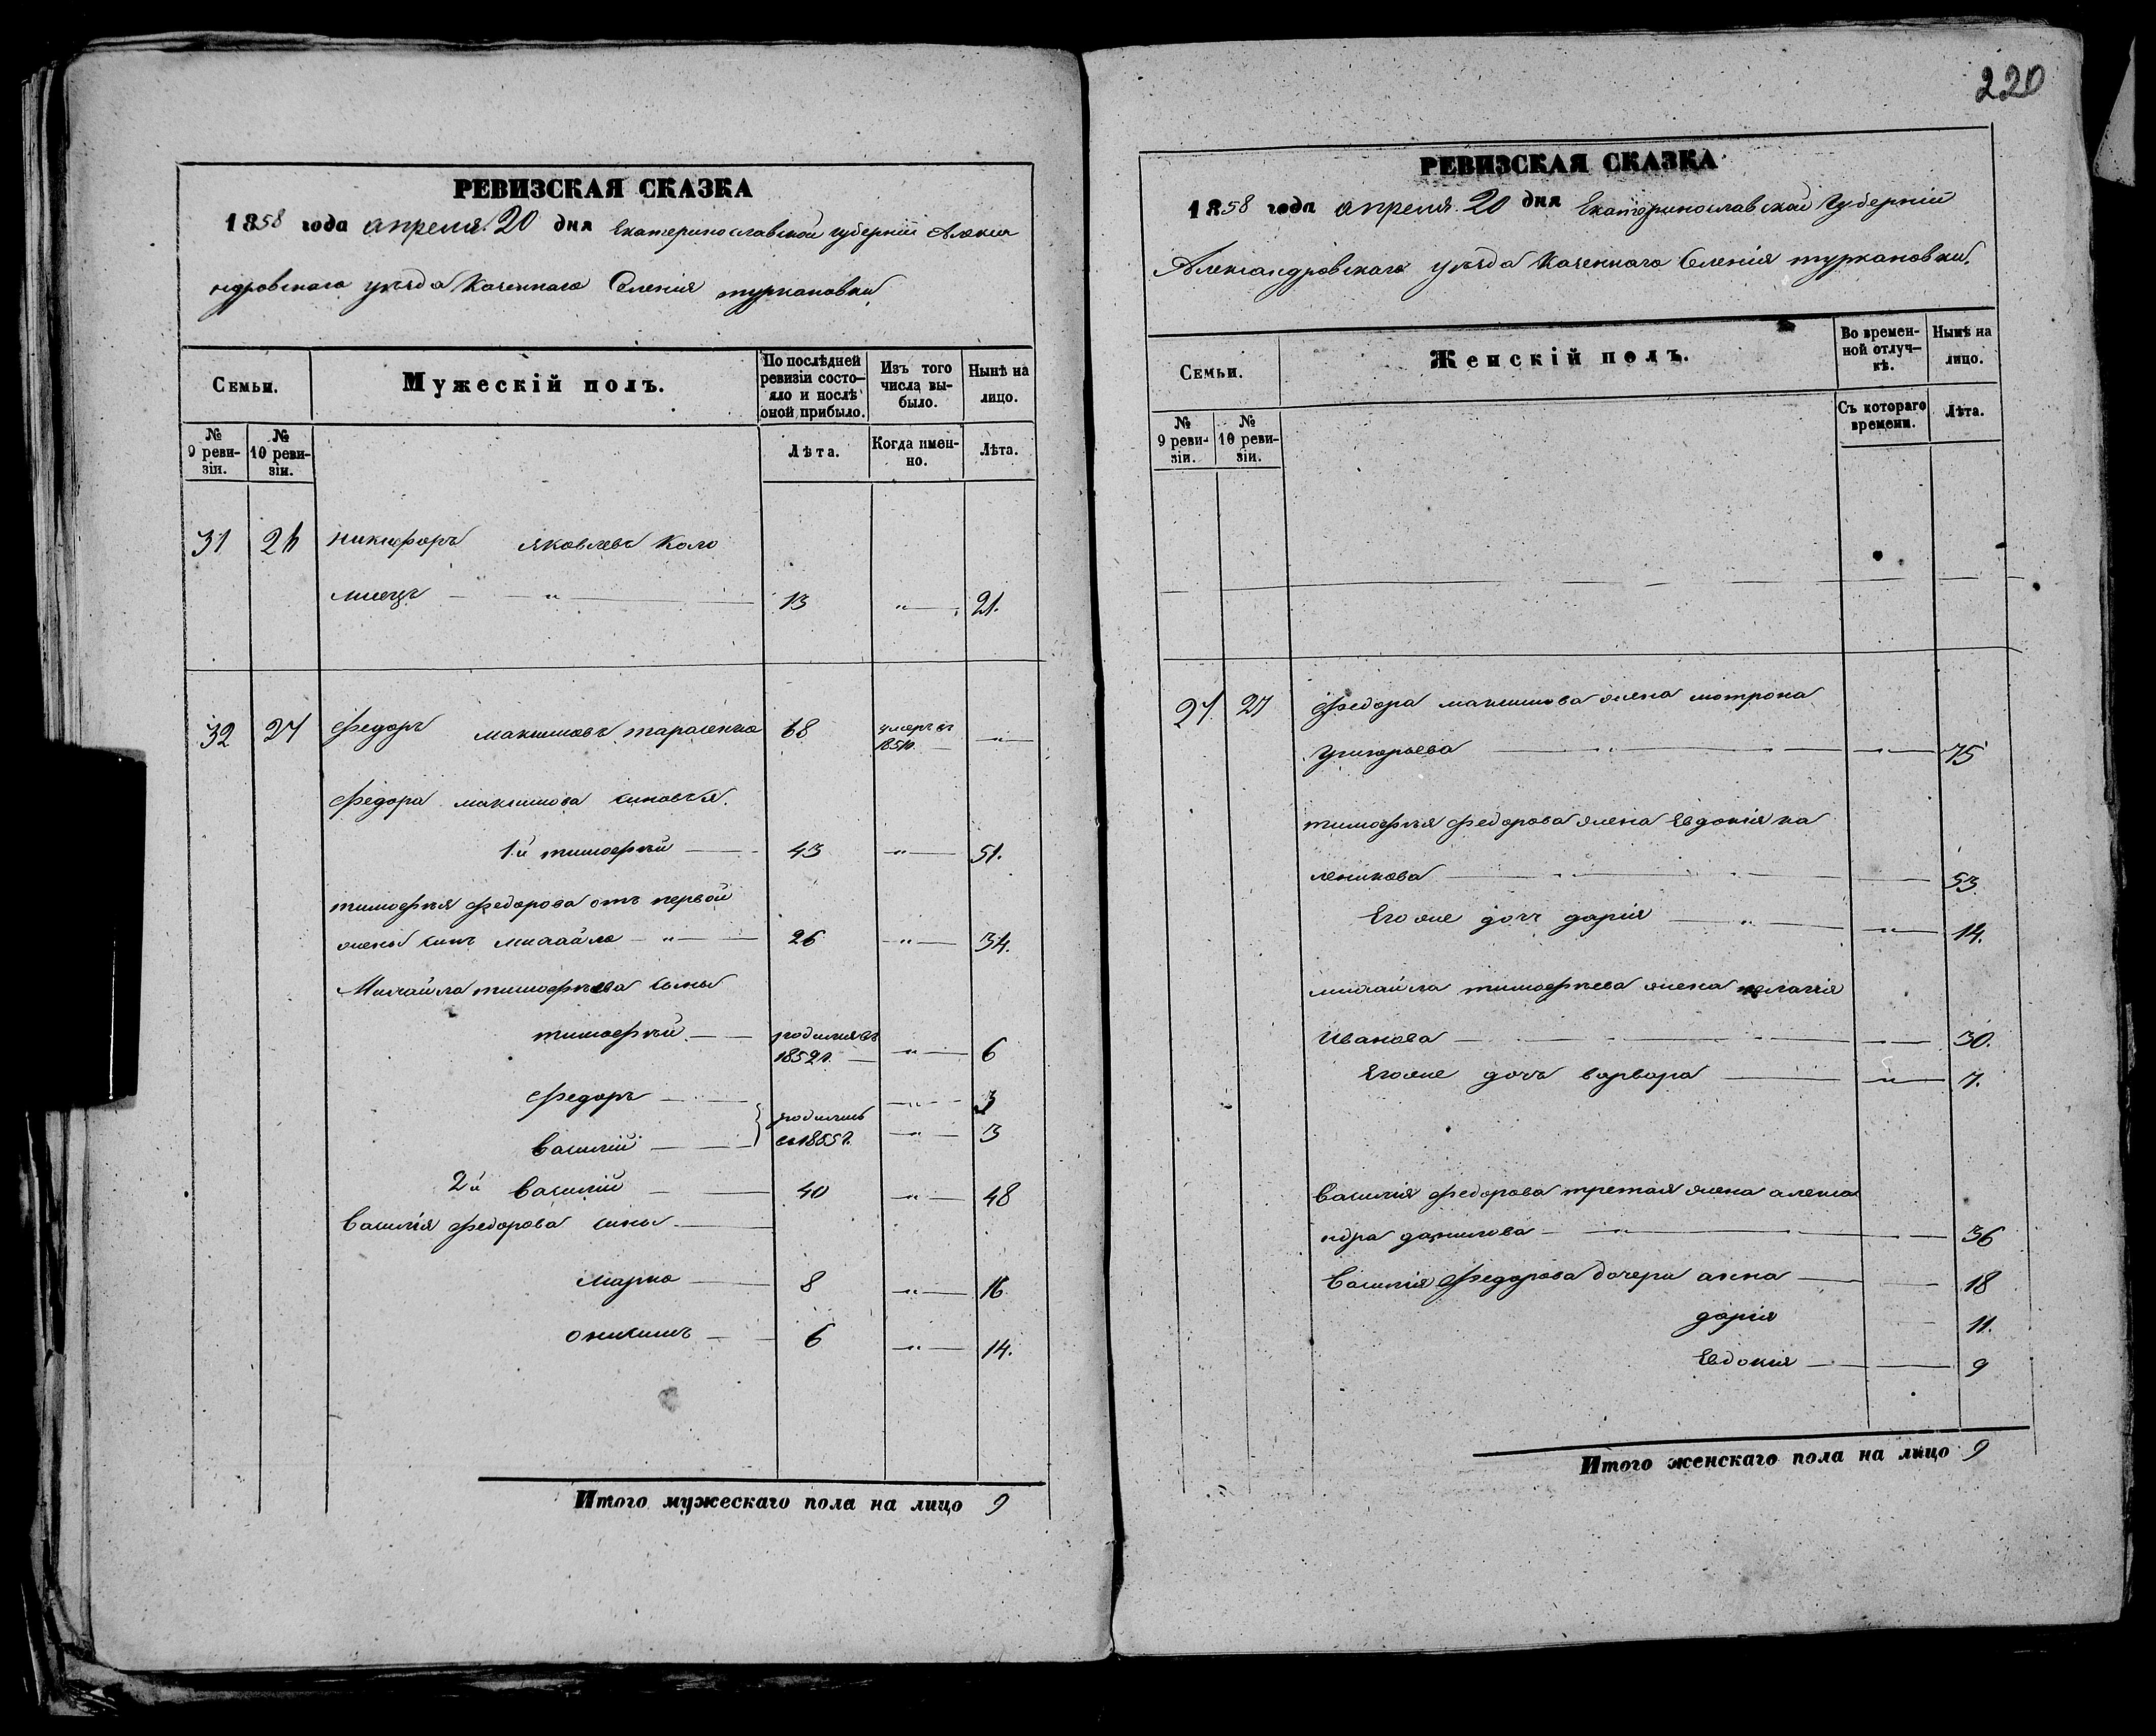 РЕВИЗСКАЯ СКАЗКА
1858 года апреля 20 дня Екатеринославской губерніи Алекса
ндровскаго уезда Казеннаго Селенія туркановки
Семьи.
Мужескій полъ.
По послѣдней ревизіи состояло и послѣ оной прибыло.
Изъ того числа выбыло.
Нынѣ на лицо.
№ 9 ревизіи.
№ 10 ревизіи.
Лѣта.
Когда именно.
Лѣта.
31 26 никифоръ яковлевъ Коло
миецъ — " — 13 " — 21.
32 27 Федоръ максимовъ тарасенко 68 умеръ въ — " —
Федора максимова синовья.
1й тимофѣй — 43 " — 51.
тимофѣя федорова отъ первой
жены синъ михайло — " — 26 " — 34.
Михайла тимофѣева сыны
тимофѣй — родился въ
1852г. — " — 6
Федоръ — " — 3
родились
въ 1855г.
Василій — " — 3
2й Василій — 40 " — 48
Василія федорова сины —
марко — 8 " — 16
онисимъ — 6 " — 14.
Итого мужескаго пола на лицо 9
220
РЕВИЗСКАЯ СКАЗКА
1858 года апреля 20 дня Екатеринославской Губерніи
Александровскаго уезда Казеннаго Селенія туркановки.
Семьи.
Женскій полъ.
Во временной отлучкѣ.
Нынѣ на лицо.
№ 9 ревизіи.
№ 10 ревизіи.
Съ котораго времени.
Лѣта.
27 27 Федора максимова жена мотрона
Григорьева — " — " — 75
тимофѣя федорова жена Евдокія ка
леникова — " — 53
Его же дочь дарія — " — " — 14.
михайла тимофѣева жена пелагія
Иванова — " — 30.
Его же дочь варвара — " — 7.
Василія федорова третая жена алекса
ндра данилова — " — 36
Василія Федорова дочери анна — 18
дарія 11.
Евдокія — 9
Итого женскаго пола на лицо 9